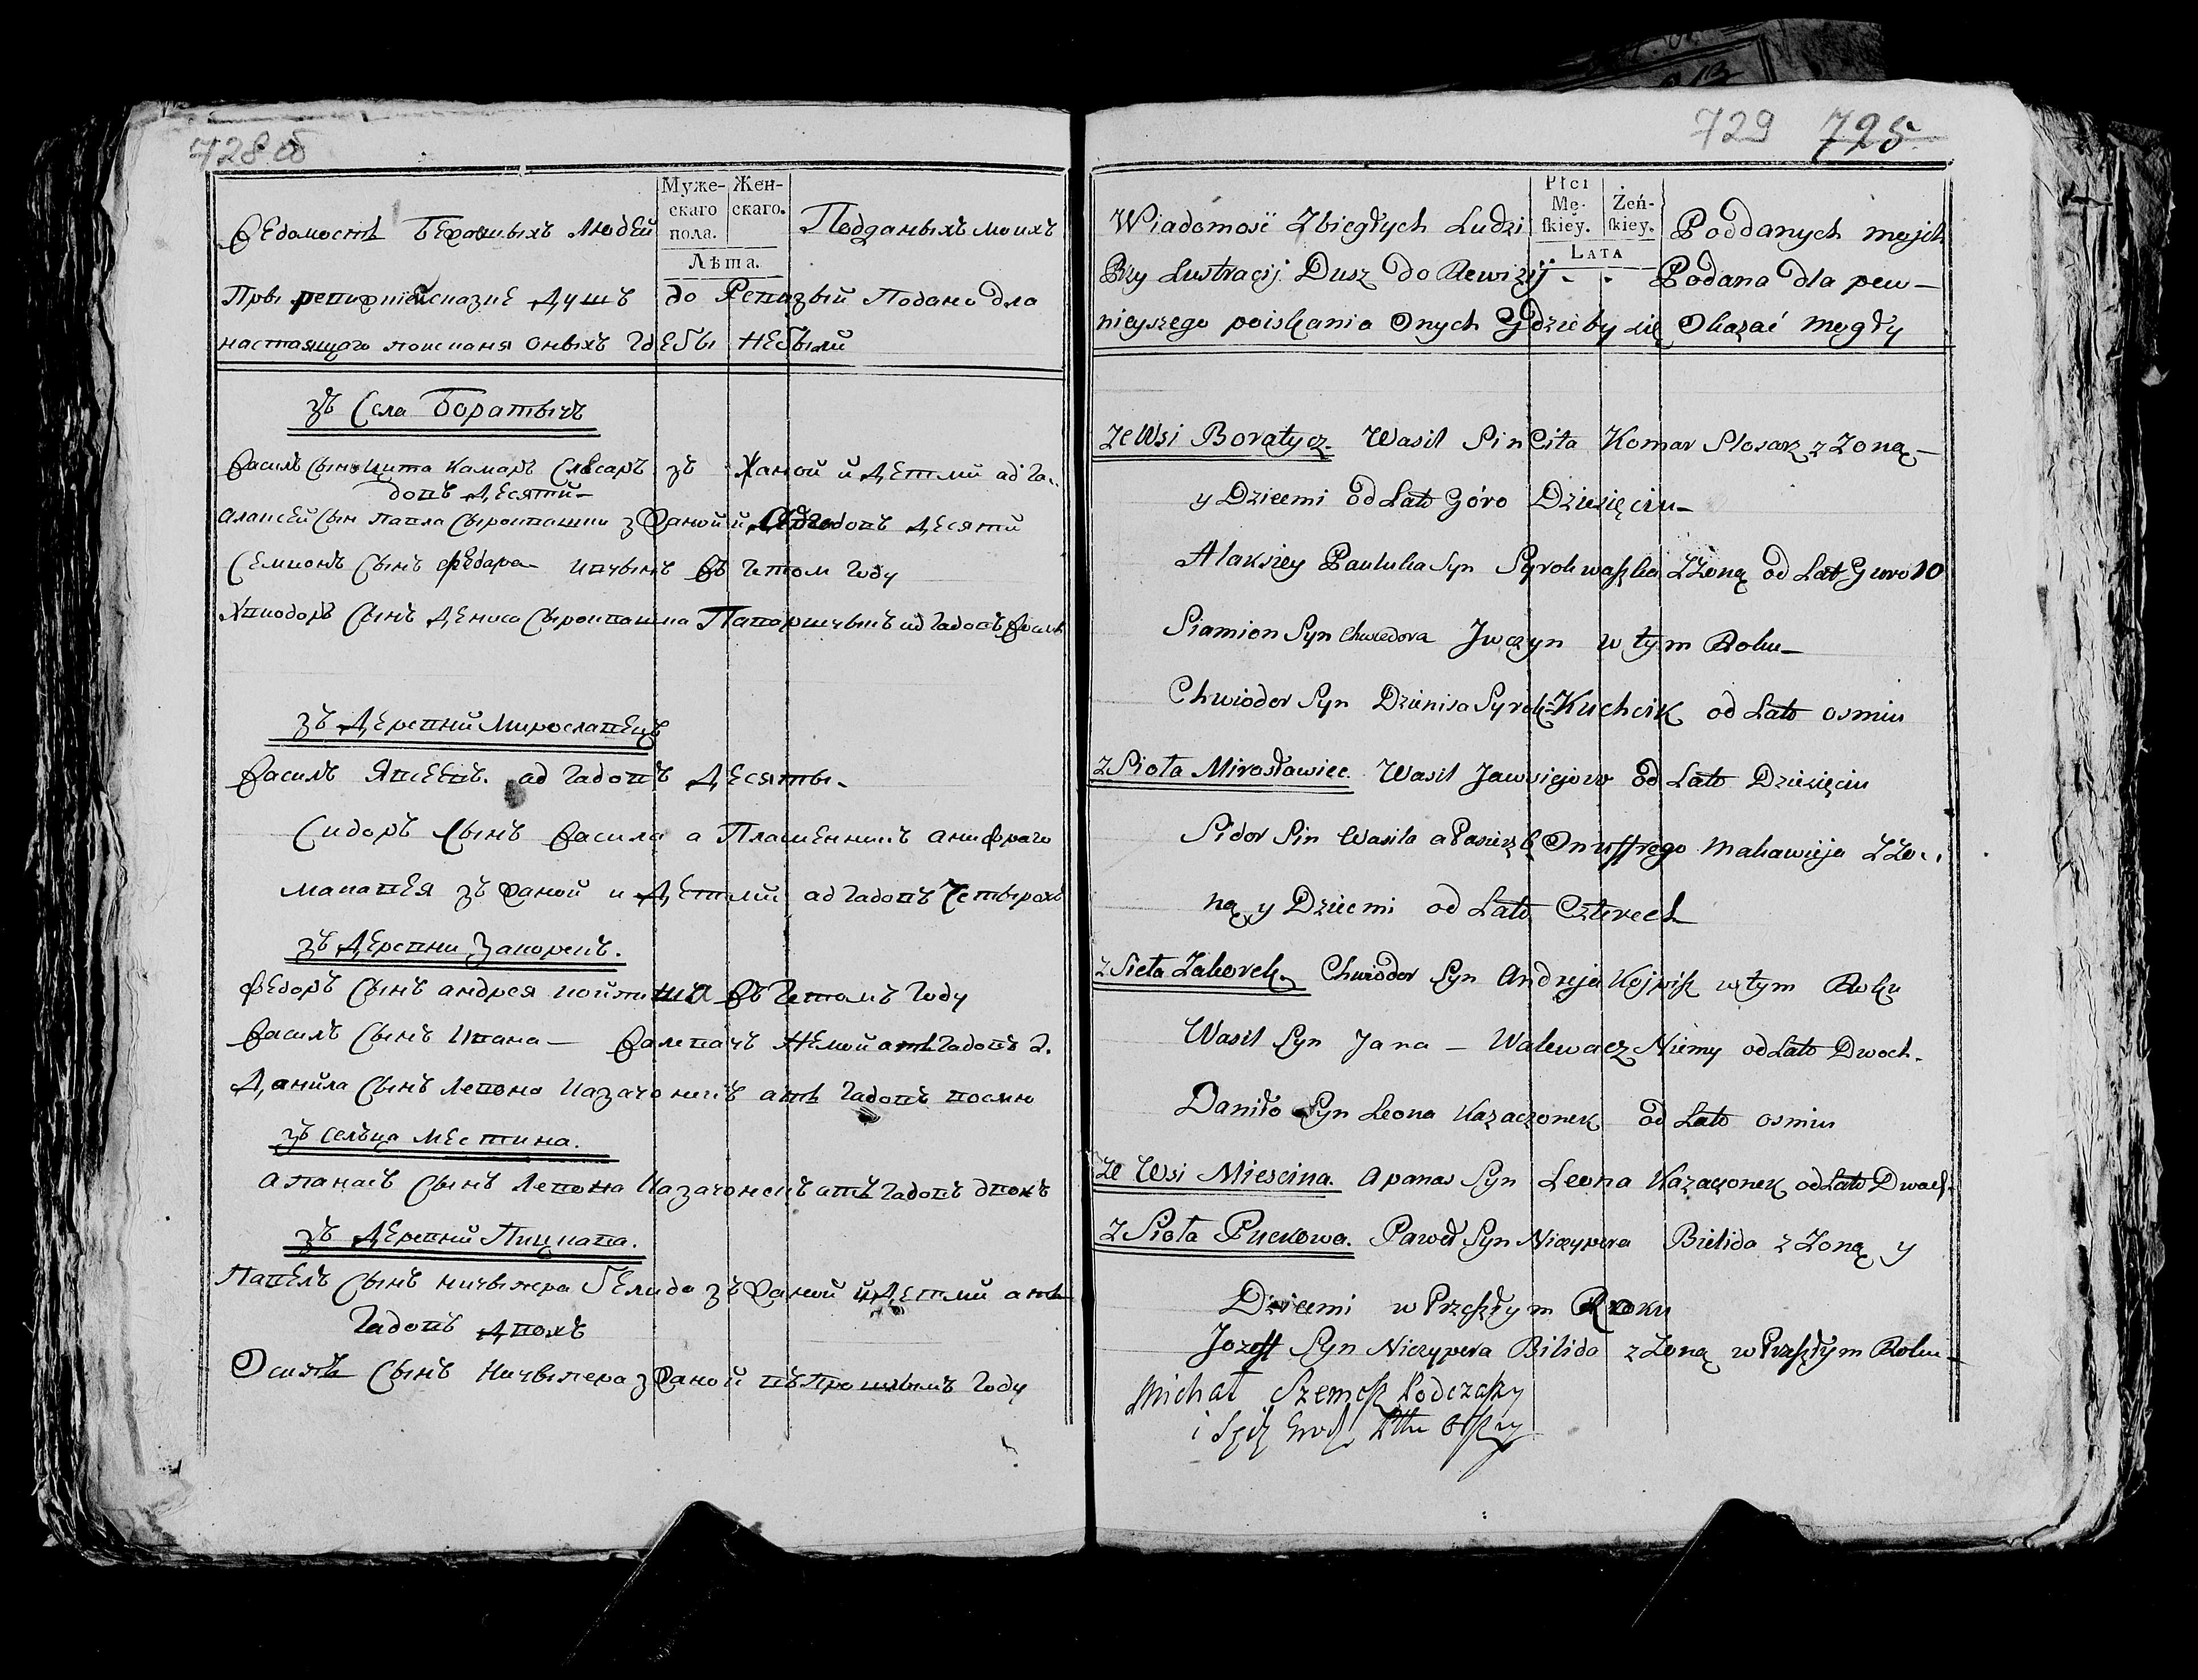 728 об
Муже- Жен-
скаго скаго.
пола.
Лѣта.
Ведомость Беглыхъ Людей Подданыхъ моихъ
При ревизкой сказке душъ до Ревизыи Подано для
настаящого поискания оныхъ гдебы небыли
зъ Села Боратычъ
Василь Сынъ Цита Камаръ Слесаръ зъ Жаной и Детми ад га..
довъ Десяти
Алаксей Сын Павла Сыроквашки з Жаной и ад Гадовъ Десяти
Семионъ Сынъ Федара Ивчынъ въ Етом Году
Хвиодоръ Сынъ Дениса Сыроквашка Паваричыкъ ад Гадовъ Восми
зъ Деревни Мирославецъ
Василь Явсеевъ. ад Гадовъ Десяты.
Сидоръ Сынъ Василя а Пласиенникъ Ануфраго
Макавея зъ Жаной и Детми ад Гадовъ Четырохъ
зъ Деревни Закорекъ.
Федоръ Сынъ Андрея Койпиша въ Етомъ Году
Василь Сынъ Ивана — Валевачъ Немой атъ Гадовъ 2.
Данила Сынъ Левона Казачонекъ атъ Гадовъ восми
зъ Сельца Местина.
Апанасъ Сынъ Левона Казачонекъ атъ Гадовъ двохъ
зъ Деревни Пицкава.
Павелъ Сынъ Ничыпера Белида зъ Жаной и Детми атъ
Гадовъ Двохъ
Осипъ Сынъ Ничыпера з Жаной въ Прошлымъ Году
729 725
Płci
Mę- Żeń-
skiey. skiey.
LATA
Wiadomosć Zbiegłych Ludzi Poddanych mojch
Przy Lustracij Dusz do Rewizij - - Podana dla pew-
nieyszego poiskania Onych Gdzieby się Okazać mogły
ze Wsi Boratycz. Wasil Sin Cita Komar Slosarz z Zoną-
y Dziecmi od Lato Góro Dziesięciu-
Alaksiey Pauluka Syn Syrokwaszka z Zoną od Lat Guro 10
Siamion Syn Chwiedora Jwczyn w tym Roku-
Chwiodor Syn Dzienisa Syrok= Kuchcik od Lato osmiu
z Sioła Mirosławiec. Wasil Jawsiejow od Lato Dziesięciu
Sidor Sin Wasila a Pasierzb Onuffrego Makawieja z Zo..
ną y Dziecmi od Lato Czterech
z Sieła Zakorek. Chwiodor Syn Andreja Kojpisz w tym Roku
Wasil Syn Jana - Walewacz Niemy od Lato Dwoch.
Daniło Syn Leona Kazaczonek od Lato osmiu
ze Wsi Miescina. Apanas Syn Leona Kazaczonek od Lato Dwoch.
z Sioła Puckowa. Paweł Syn Niczypera Bielida z Zoną y
Dziecmi w Przeszłym Roku
Jozeff Syn Niczypera Bilida z Zoną w Przeszłym Roku-
Michał Szemesz Podczaszy